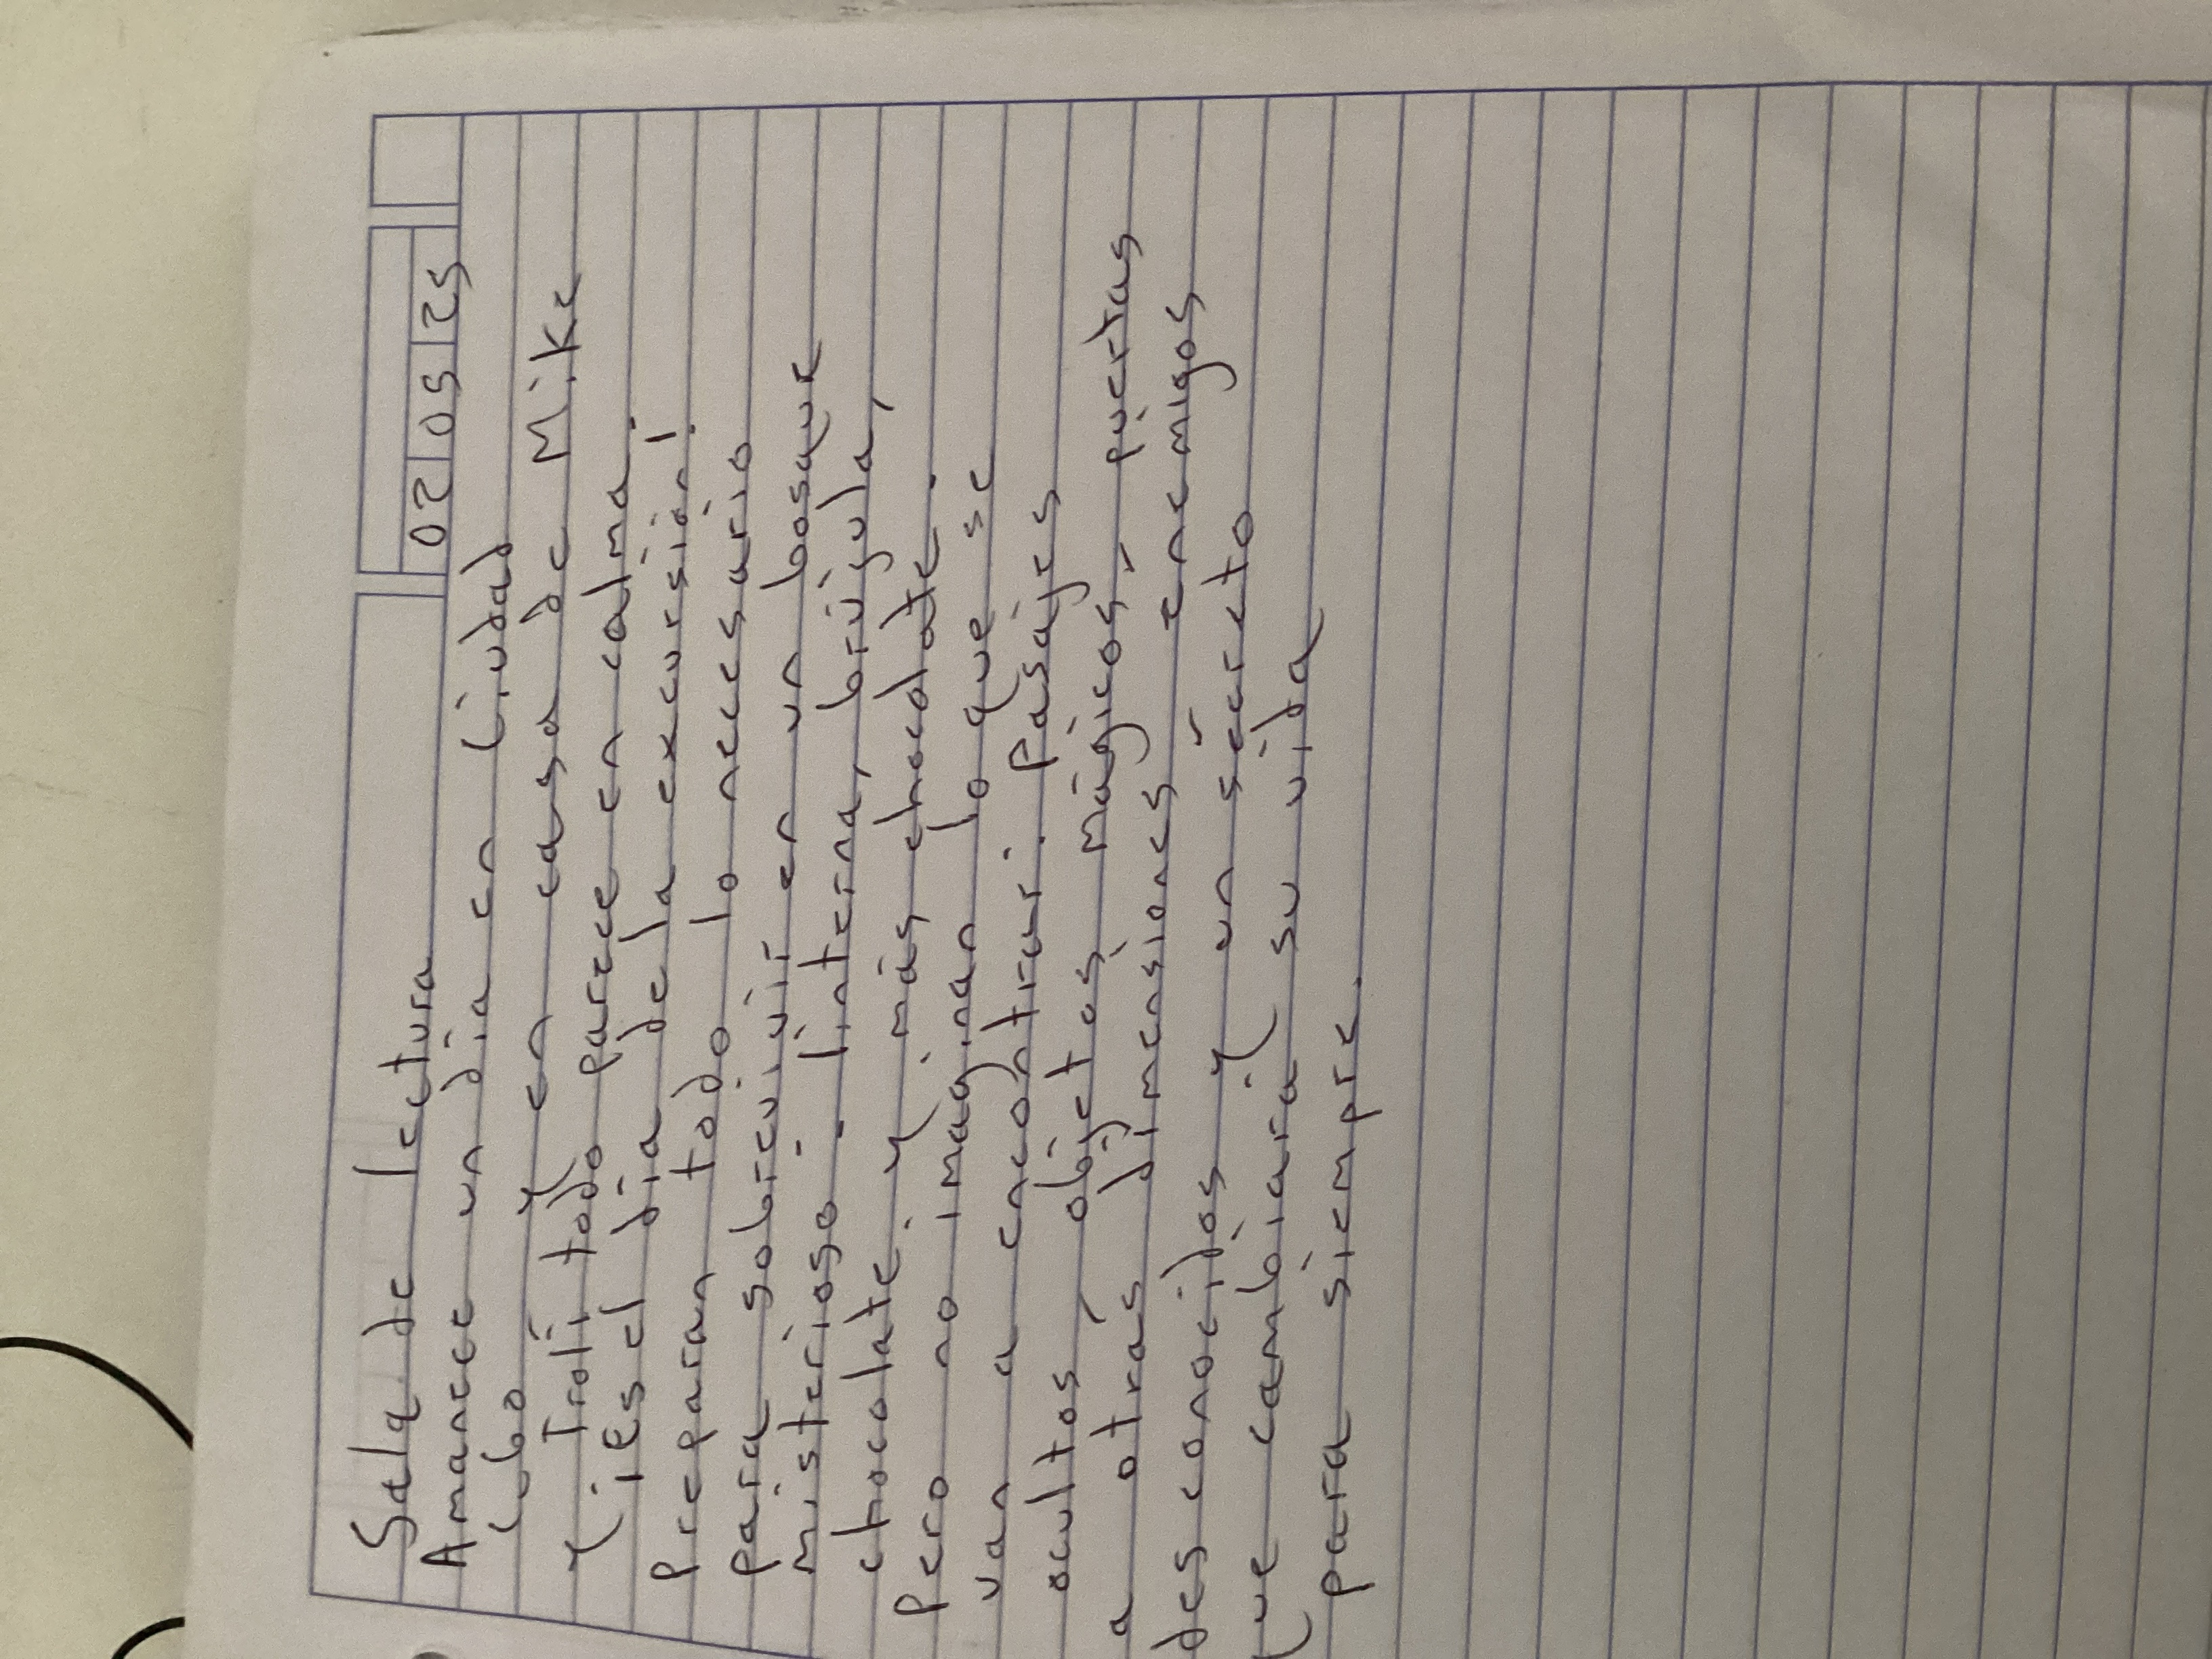 02 05 25
Sala de lectura
Amanece un dia en Ciudad
Cubo y en casa de Mike
y Trolli todo parece en calma.
¡Es el dia de la excursión!
Preparan todo lo necesario
para sobrevivir en un bosque
misterioso: linterna, brújula,
chocolate y más chocolate.
Pero no imaginan lo que se
van a encontrar: Pasajes
ocultos, objetos mágicos, puertas
a otras dimensiones, enemigos
desconocidos y un secreto
que cambiará su vida
para siempre.